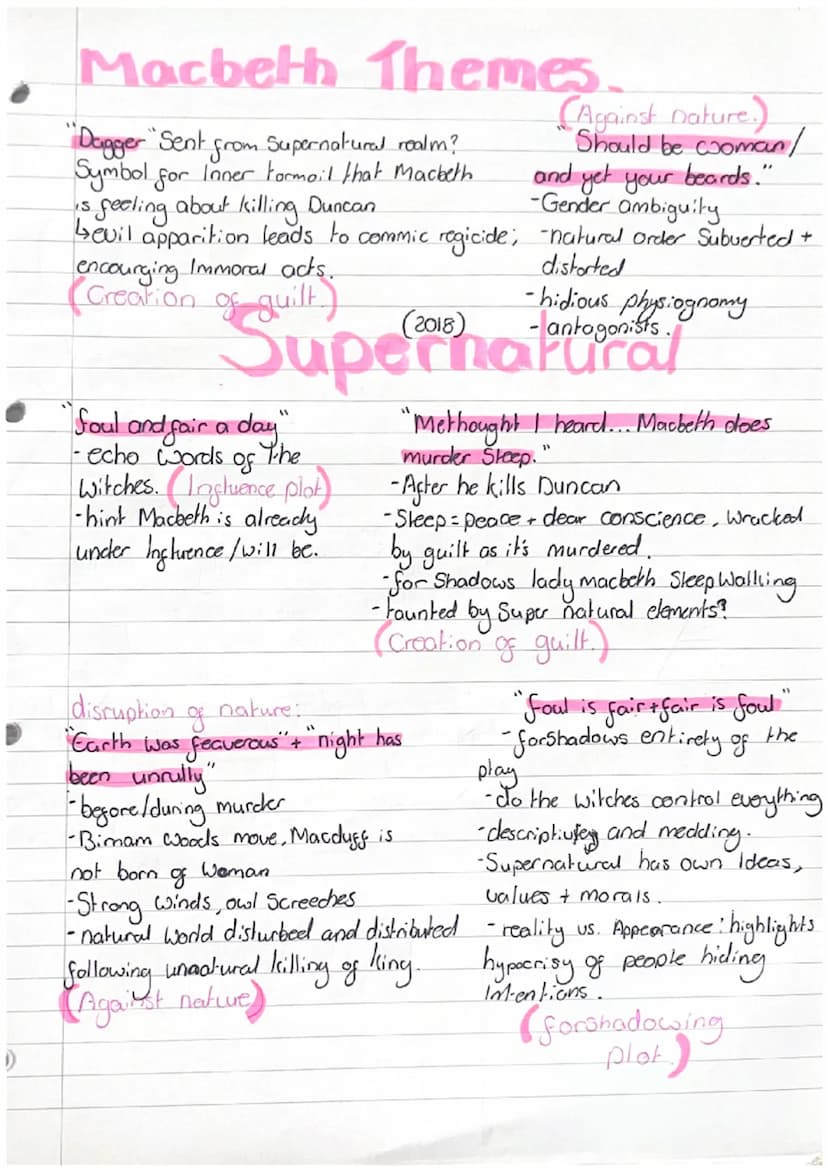 Macbeth Themes.
"Dagger" Sent from Supernatural realm?
Symbol for Inner tormoil that Macbeth
is feeling about killing Duncan
↳evil apparition leads to commic regicide;
encourging Immoral acts.
(Creation of guilt.)
(Against nature.)
"Should be wooman/
and yet your beards."
-Gender ambiguity
-natural order Subverted +
distorted
-hidious physiognomy
-antagonists.
(2018)
Supernatural
"foul and fair a day"
- echo words of the
witches. (Influence plot)
-hint Macbeth is already
under Influence/will be.
"Methought I heard... Macbeth does
murder Sleep."
-After he kills Duncan
-Sleep = peace + clear conscience, wracked
by guilt as it's murdered.
-for Shadows lady macbeth Sleep Walking
-taunted by Super natural elements?
(Creation of guilt.)
disruption of nature:
"Earth was feaverous" + "night has
been unrully"
-before/during murder
-Birnam woods move, Macduff is
not born of Woman
-Strong winds, owl Screeches
-natural world disturbed and distributed
following unnatural killing of king.
(Against nature)
"foul is fair + fair is foul"
-forShadows entirety of the
play
-do the witches control everything
and medding.
-Supernatural has own Ideas,
values + morals.
-reality vs. Appearance: highlights
hypocrisy of people hiding
Intentions.
(forshadowing
plot.)